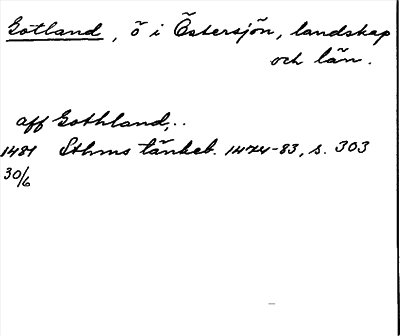 Gotland, ö i Östersjön, landskap
och län.
aff Gothland,..
1481 Sthms tänkeb. 1474-83, s. 303
30/6